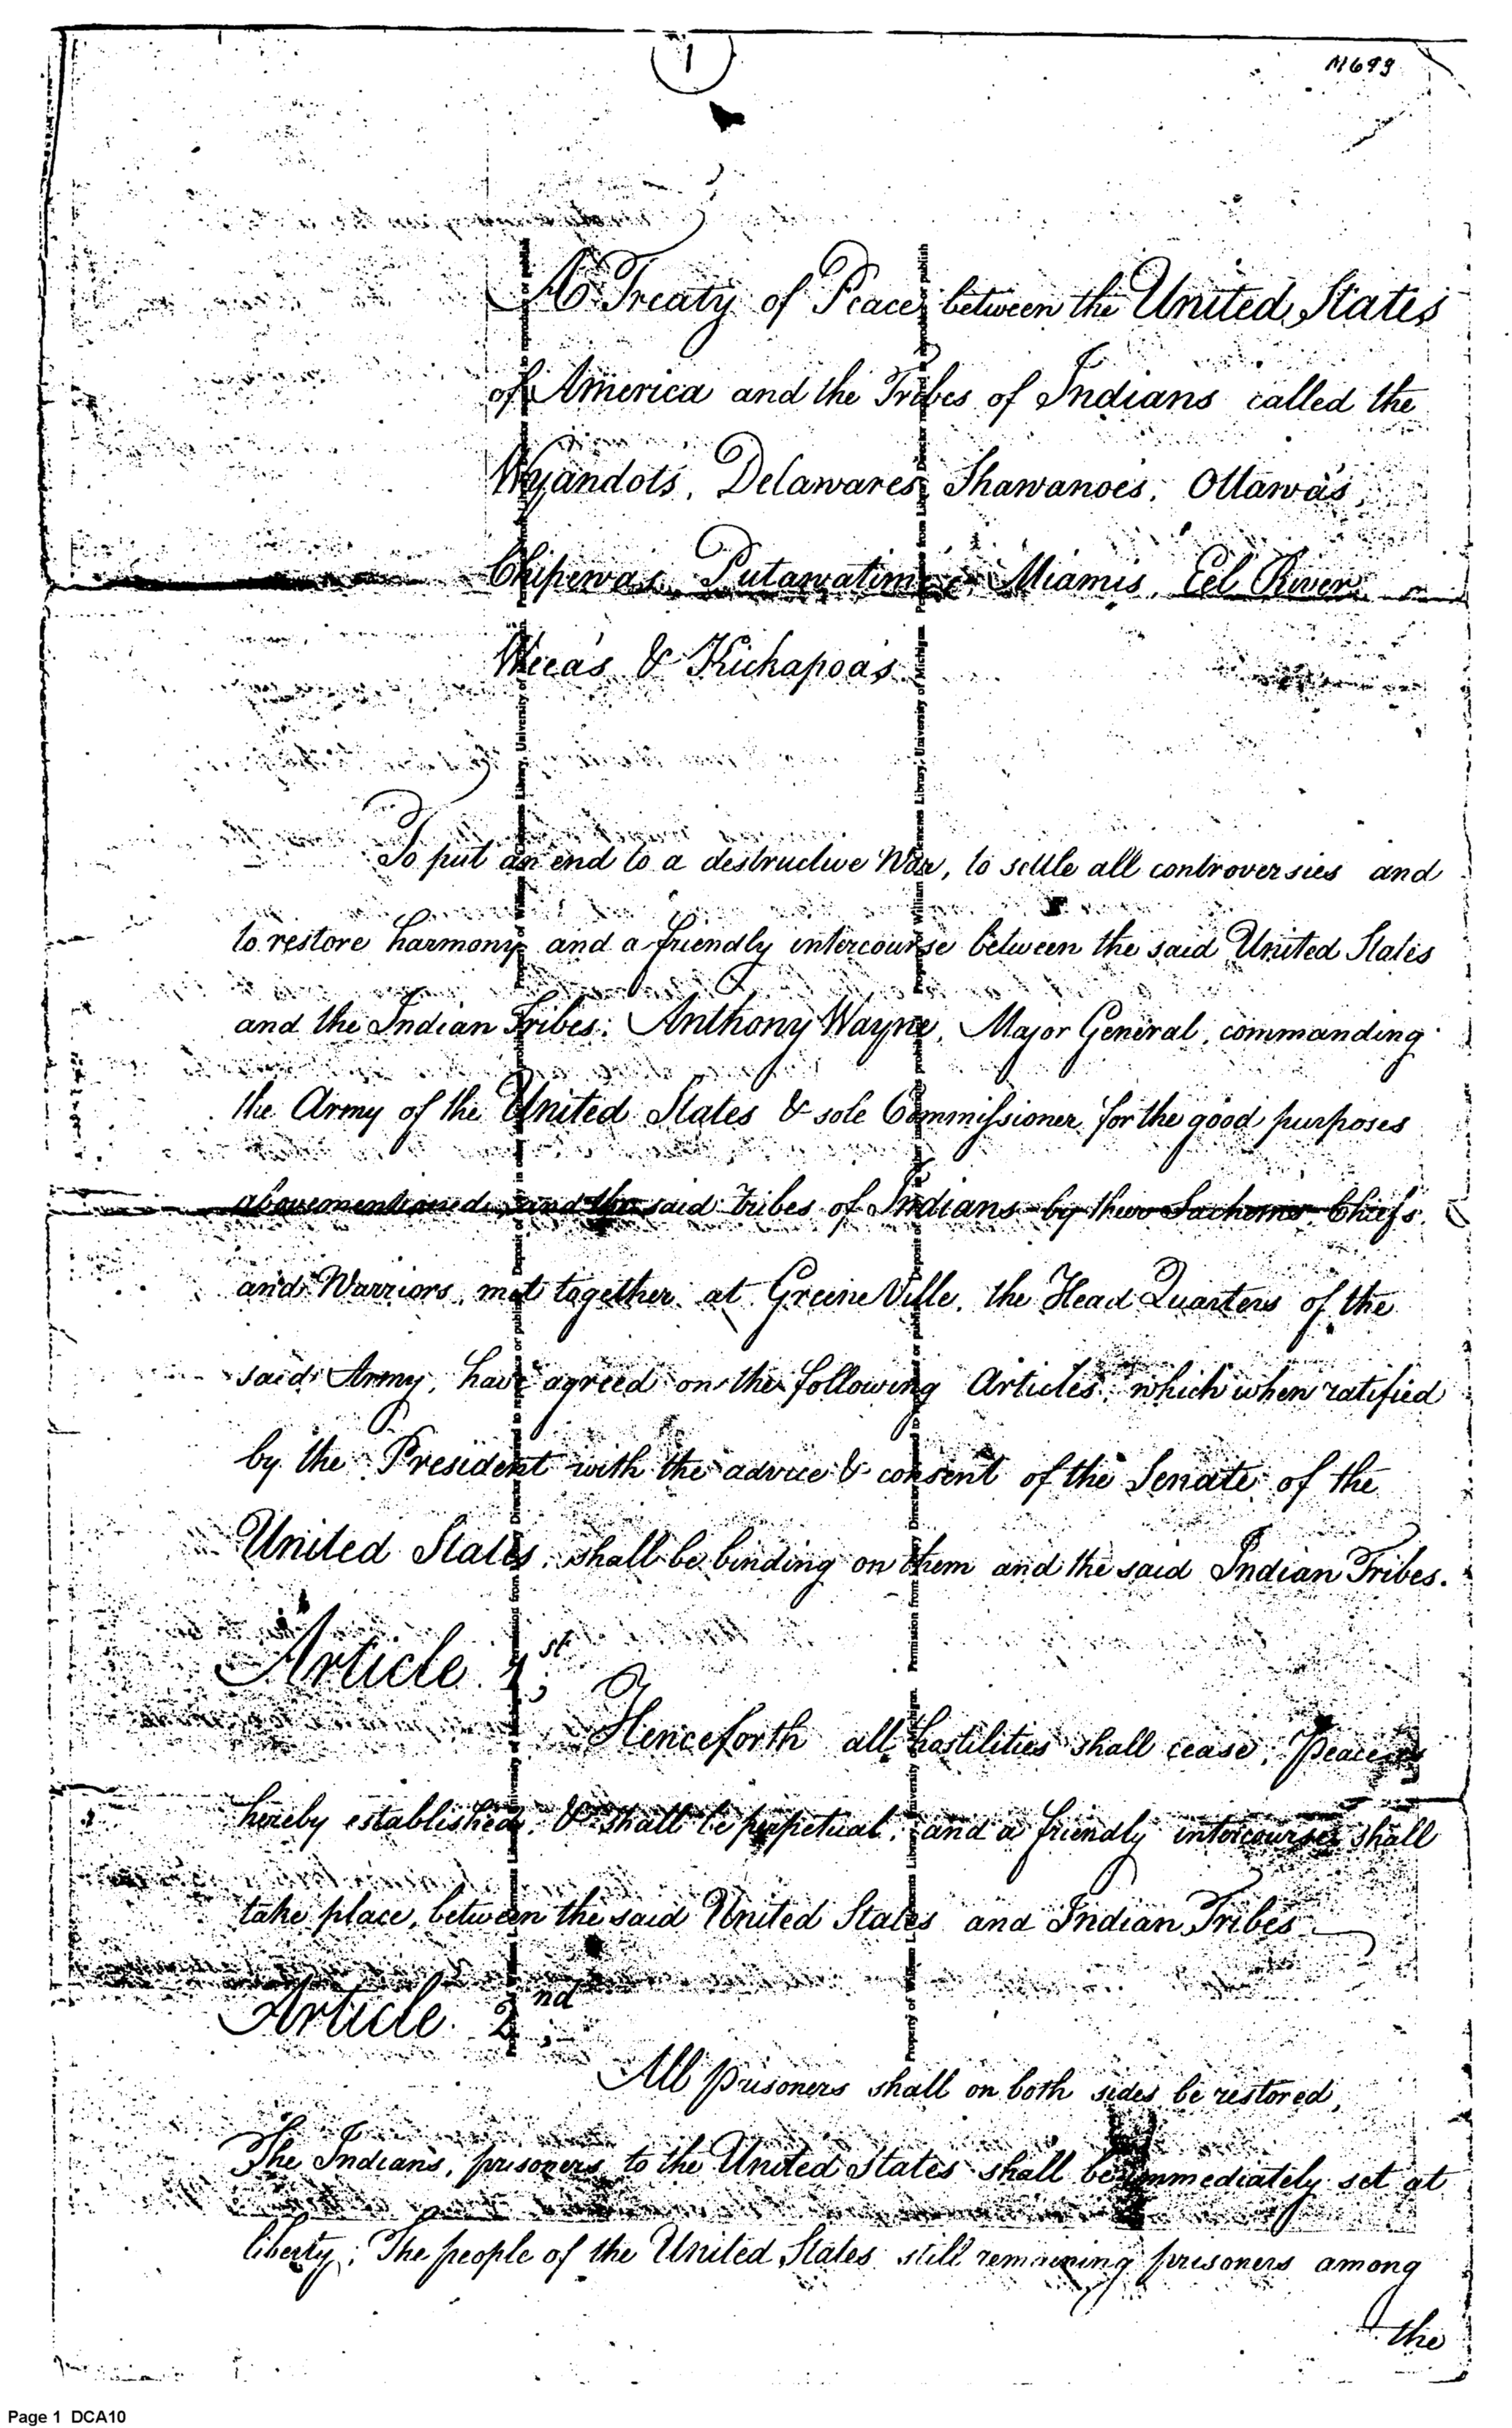 1
M699
A Treaty of Peace between the United States
of America and the Tribes of Indians called the
Wyandots, Delawares, Shawanoes, Ottawa's,
Chipewa's, Putawatimes, Miamis, Eel River,
Weea's & Kickapoa's
To put an end to a destructive War, to settle all controversies and
to restore harmony and a friendly intercourse between the said United States
and the Indian Tribes: Anthony Wayne, Major General, commanding
the Army of the United States & sole Commissioner for the good purposes
abovementioned, and the said tribes of Indians by their Sachems, Chiefs,
and Warriors, met together at Greene Ville, the Head Quarters of the
said Army, have agreed on the following Articles, which when ratified
by the President with the advice & consent of the Senate of the
United States, shall be binding on them and the said Indian Tribes.
Article 1st;
Henceforth all hostilities shall cease, Peace is
hereby established, & shall be perpetual, and a friendly intercourse shall
take place, between the said United States and Indian Tribes
Article 2nd;
All prisoners shall on both sides be restored,
The Indians, prisoners to the United States shall be immediately set at
liberty; The people of the United States still remaining prisoners among
the
Property of William L. Clements Library, University of Michigan. Permission from Library Director required to reproduce or publish
Page 1 DCA10